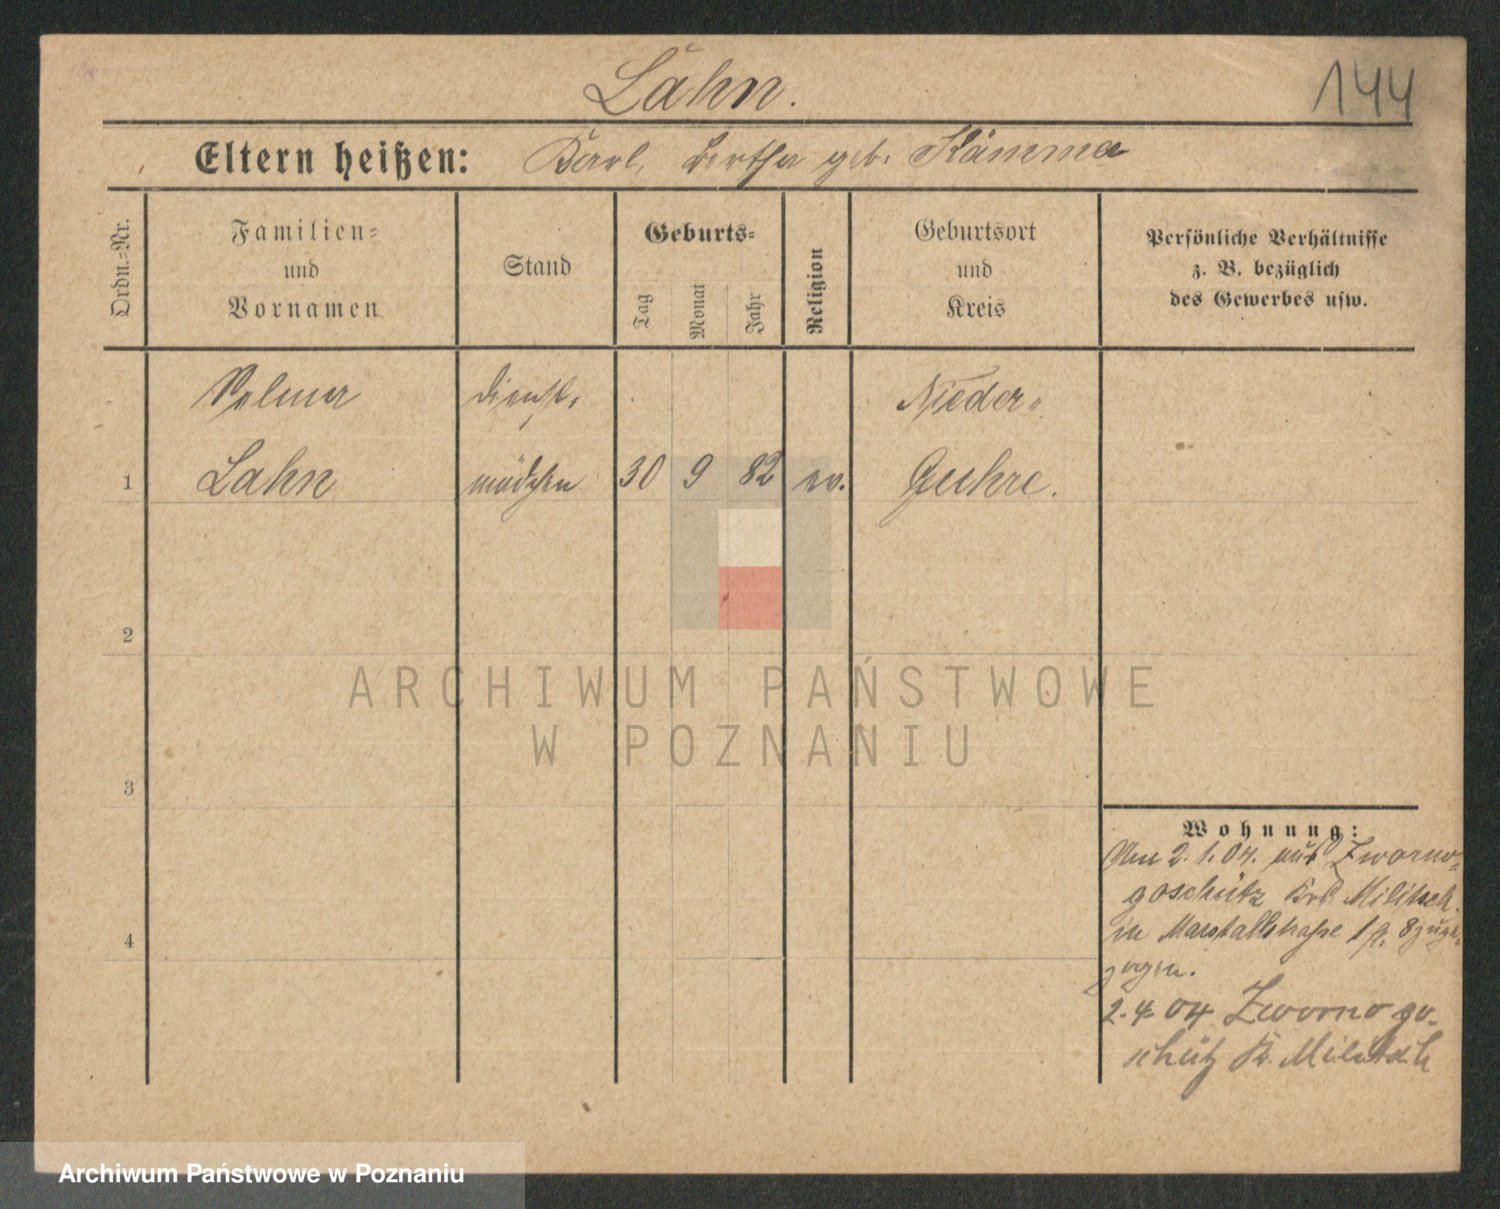 Lahn.
144
Eltern heißen: Karl, Bertha geb. Klämma
Ordn.-Nr.
Familien-
und
Vornamen
Stand
Geburts-
Tag
Monat
Jahr
Religion
Geburtsort
und
Kreis
Persönliche Verhältnisse
z. B. bezüglich
des Gewerbes usw.
Dienst-
Nieder-
1 Lahn mädchen 30 9 82 ev. Guhre.
2
3
4
Wohnung:
Am 2.1.04. aus Zworno-
goschütz Krs. Militsch
in Marstallstraße 8 zuge-
zogen.
2.4.04 Zwornogo-
schütz Kr. Militsch
ARCHIWUM PAŃSTWOWE
W POZNANIU
Archiwum Państwowe w Poznaniu